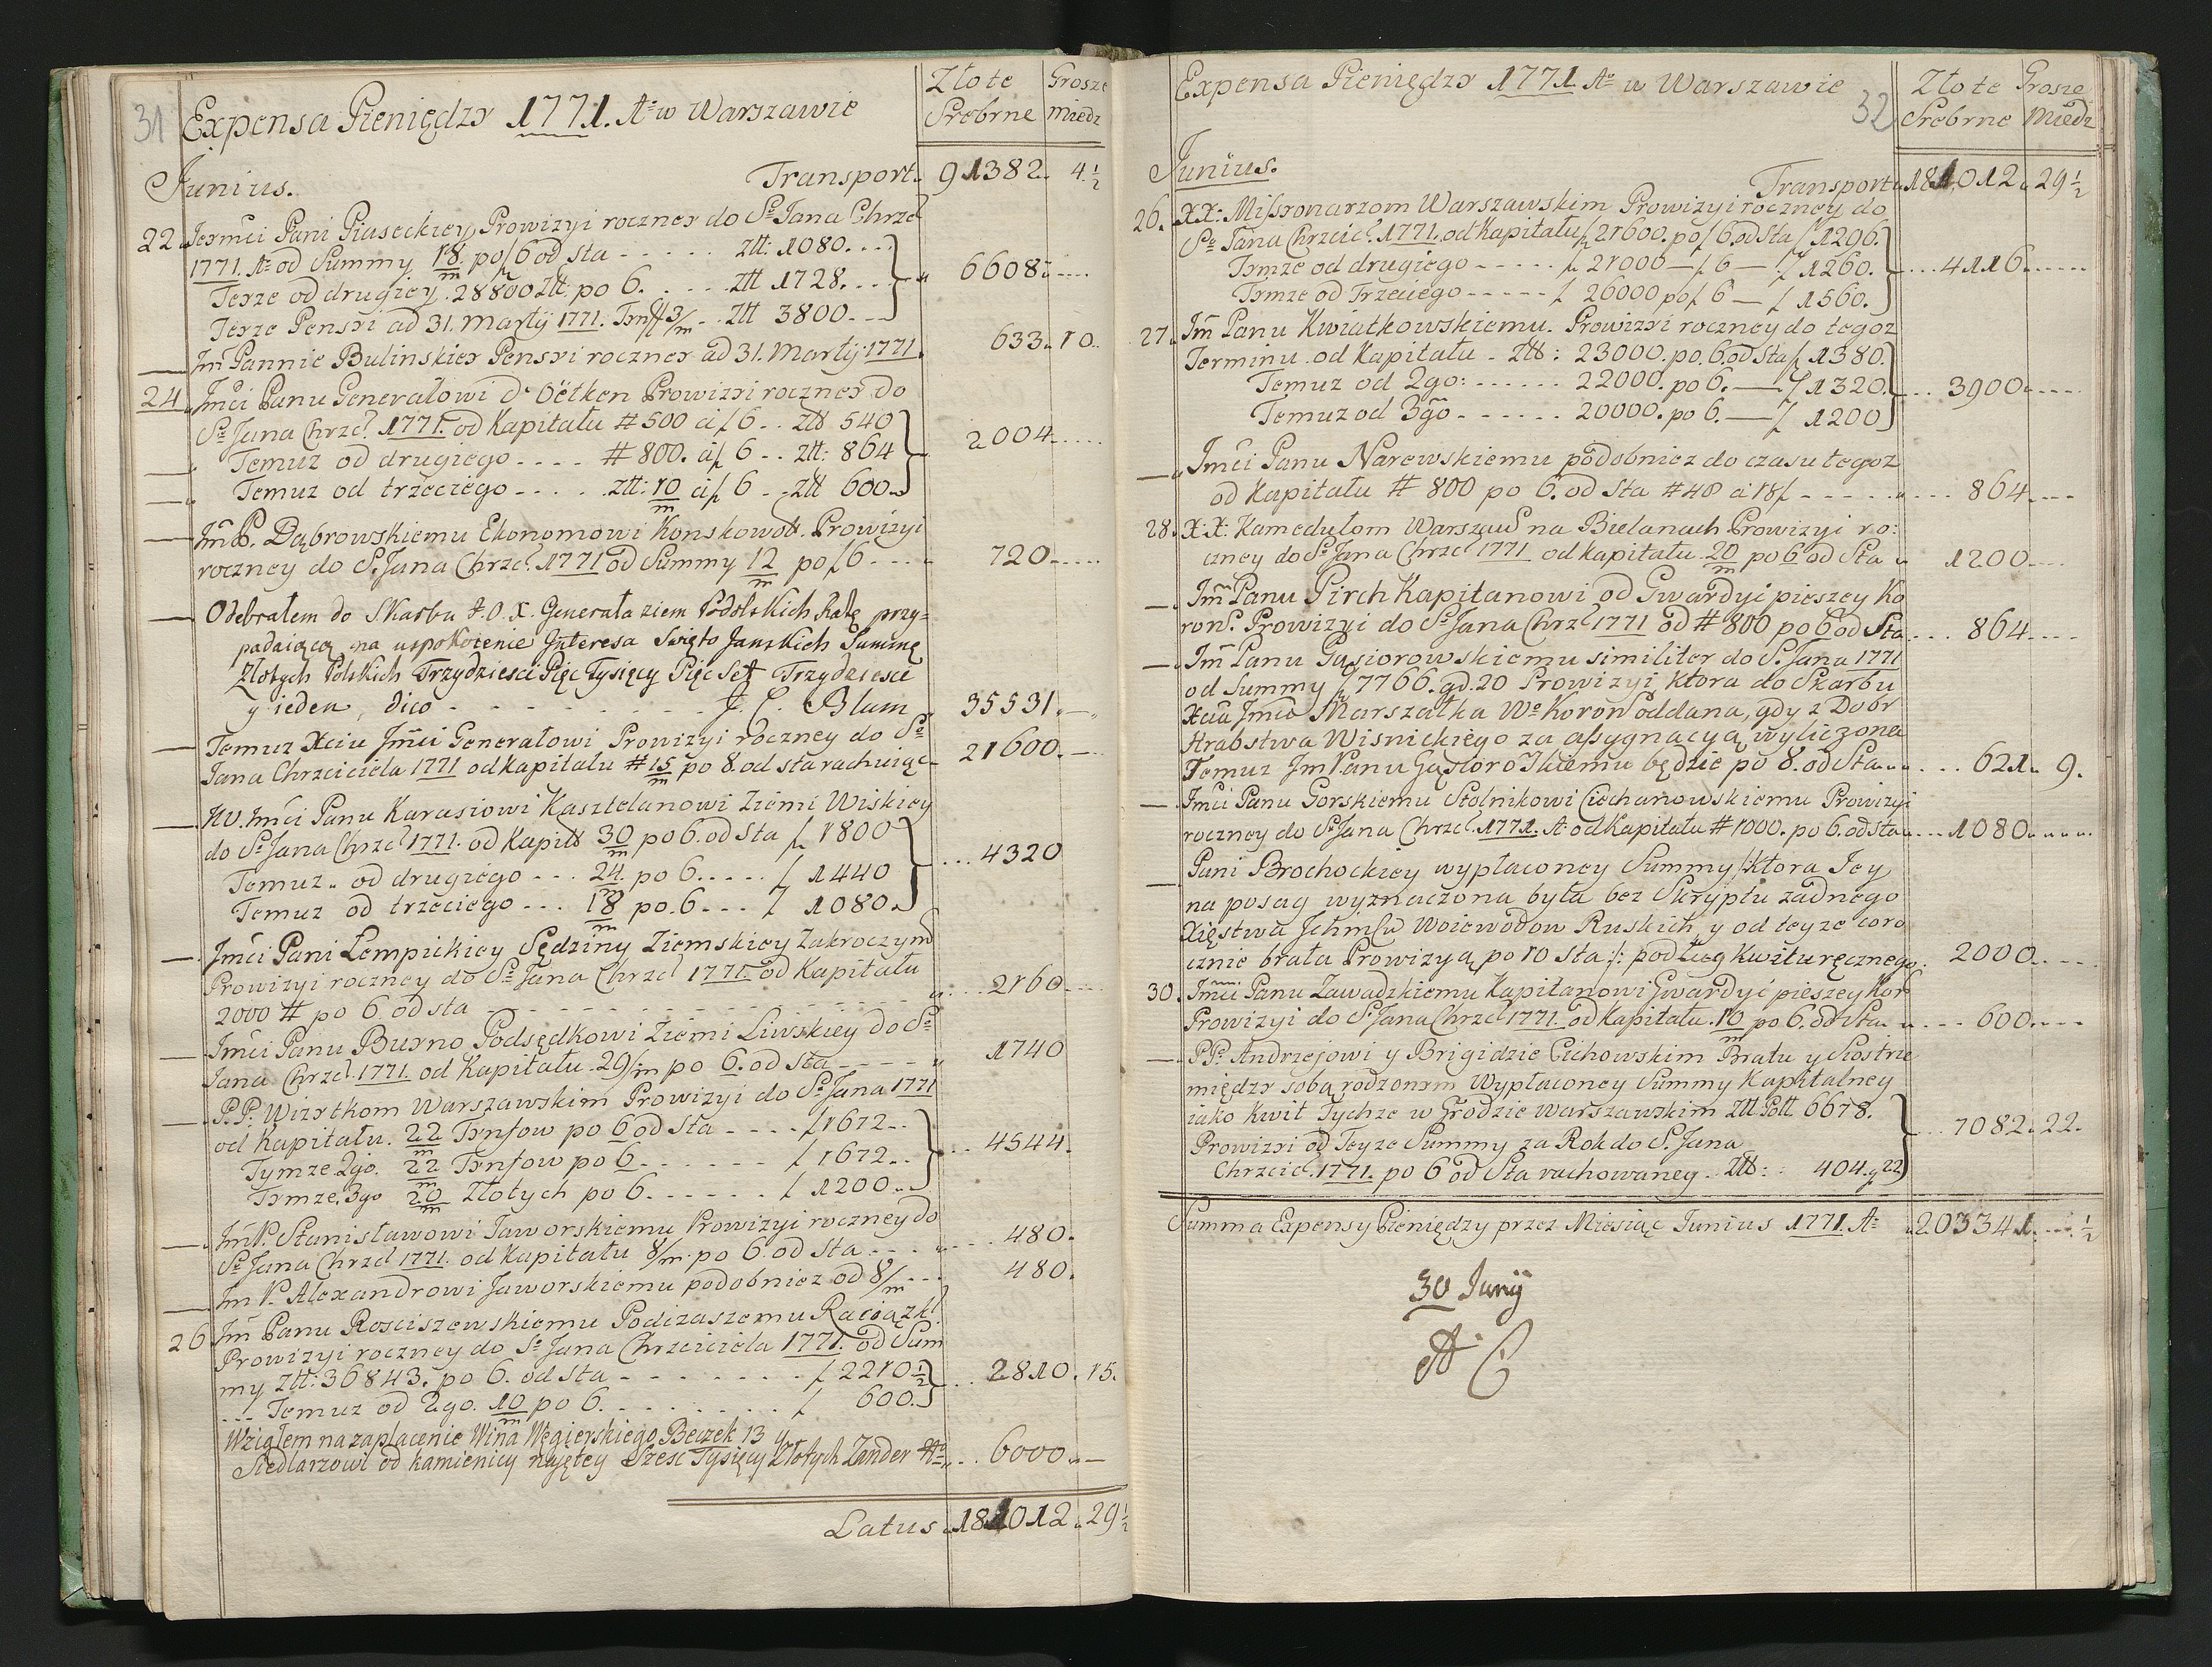 31 Expensa Pieniędzy 1771. Aº w Warszawie
Złote Srebrne Grosze miedz
Junius. Transport. 91382. 4½
22. Jeymci Pani Piaseckiey Prowizyi roczney do Sº Jana Chrzcl
1771. Aº od Summy 18/m po f 6 od sta - - - - - ztt. 1080. - - -
Teyze od drugiey 28800 Ztt. po 6. - - - - ztt 1728. - - - 6608: - - -
Teyze Pensyi ad 31. Martÿ 1771. Tynff 3/m - - Ztt 3800 - - -
Jm Pannie Bulinskiey Pensyi roczney ad 31. Martÿ 1771. 633. 10.
24. Jmci Panu Generałowi d'Oëtken Prowizyi roczney do
Sº Jana Chrzcl. 1771. od Kapitału # 500 à f 6 - - ztt 540
Temuz od drugiego - - - - # 800. à f 6 - - ztt: 864 2004 - - - -
Temuz od trzeciego - - - - - ztt: 10/m à f 6 - - ztt 600.
Jm P. Dąbrowskiemu Ekonomowi Konskowol. Prowizyi
roczney do S. Jana Chrzcl. 1771 od Summy 12/m po f 6 - - - - 720 - - - -
Odebrałem do Skarbu J. O. X. Generała ziem Podolskich Ratę przy-
padaiącą na uspokoienie Jnteresa Swięto Janskich Summę
Złotych Polskich Trzydziesci Pięc Tysięcy Pięc Set Trzydziesci
y ieden, dico - - - - - - - - - J. C. Blum 35531. —
Temuz Xciu Jmci Generałowi Prowizyi roczney do Sº
Jana Chrzciciela 1771 od kapitału # 15/m po 8. od sta rachuiąc 21600. —
W. Jmci Panu Karasiowi Kasztelanowi Ziemi Wiskiey
do Sº Jana Chrzcl 1771. od Kapitt 30/m po 6. od Sta f 1800
Temuz. od drugiego - - - 24/m po 6. - - - - f 1440 . . . 4320
Temuz od trzeciego - - - 18/m po 6 - - - f 1080.
Jmci Pani Łempickiey Sędziny Ziemskiey Zakroczym
Prowizyi roczney do Sº Jana Chrzcl 1771. od Kapitału
2000 # po 6. od sta - - - - - - - - - - - - 2160 - - -
Jmci Panu Buyno Podsędkowi Ziemi Liwskiey do Sº
Jana Chrzcl. 1771. od Kapitału. 29/m po 6. od sta - - - - 1740
P.P: Wizytkom Warszawskim Prowizyi do Sº Jana 1771
od Kapitału. 22/m Tynfow po 6 od sta - - - - f 1672 - -
Tymze 2go. 22/m Tynfow po 6 - - - - - - f 1672 - - 4544.
Tymze. 3go 20/m Złotych po 6. - - - - - f 1200 - -
Jm P. Stanisławowi Jaworskiemu Prowizyi roczney do
Sº Jana Chrzcl 1771. od Kapitału 8/m. po 6. od Sta - - - . . . 480.
Jm P. Alexandrowi Jaworskiemu podobniez od 8/m - - - 480.
26 Jm Panu Rosciszewskiemu Podczaszemu Raciązkl
Prowizyi roczney do Sº Jana Chrzciciela 1771. od Sum
my Ztt: 36843. po 6. od sta - - - - - - - - f 2210½ . . . 2810. 15.
- - - Temuz od 2go. 10/m po 6. - - - - - - - f 600.
Wziąłem na zapłacenie Wina Węgierskiego Beczek 13 y
Siedlarzowi od kamienicy naiętey Szesc Tysięcy Złotych Zander . . 6000. —
Latus . 181012. 29½
Expensa Pieniędzy 1771. Aº w Warszawie 32
Złote Srebrne Grosze Miedz
Junius.
Transport. 181012. 29½
26. XX: Missyonarzom Warszawskim Prowizyi roczney do
Sº Jana Chrzcic. 1771. od Kapitału f 21600. po f 6. od Sta f 1296.
Tymze od drugiego - - - - - f 21000 — f 6 — f 1260. . . . 4116. - - - -
Tymze od Trzeciego - - - - - f 26000 po f 6 — f 1560.
27. Jm Panu Kwiatkowskiemu. Prowizyi roczney do tegoz
Terminu od Kapitału - Ztt: 23000. po 6. od sta f 1380.
Temuz od 2go: - - - - - - 22000. po 6. — f 1320. . . . 3900. - - -
Temuz od 3go - - - - - - 20000. po 6. — f 1200
Jmci Panu Narewskiemu podobniez do czasu tegoz
od Kapitału # 800 po 6. od Sta # 48 à 18 f - - - - - . . . 864. - - -
28. X:X: Kamedułom Warszaw na Bielanach Prowizyi ro:
czney do Sº Jana Chrzcl 1771 od kapitału 20/m po 6 od Sta 1200. - - -
Jm Panu Pirch Kapitanowi od Gwardyi pieszey Ko
ron. Prowizyi do Sº Jana Chrzcl 1771 od # 800 po 6 od Sta . . . 864. - - -
Jm Panu Gąsiorowskiemu similiter do S. Jana 1771
od Summy f 7766. gd. 20 Prowizyi, ktora do Skarbu
Xcia Jmci Marszałka Wº Koron oddana, gdy z Dobr
Hrabstwa Wisnickiego za assygnacyą wyliczona
Temuz Jm Panu Gąsiorowskiemu będzie po 8. od Sta . . . 621. 9.
Jmci Panu Gorskiemu Stolnikowi Ciechanowskiemu Prowizyi
roczney do Sº Jana Chrzcl. 1771. Aº od Kapitału # 1000. po 6. od sta . . . 1080. - - -
Pani Brochockiey wypłaconey Summy /: Ktora Jey
na posag wyznaczona była bez Skryptu zadnego
Xięstwa Jchmciw Woiewodow Ruskich, y od teyze coro
cznie brała Prowizyą po 10 Sta :/: podług Kwitu ręcznego. 2000. - - -
30. Jmci Panu Zawadzkiemu Kapitanowi Gwardyi pieszey Kor
Prowizyi do Sº Jana Chrzcl 1771. od Kapitału. 10/m po 6. od Sta . . . 600. - - -
PP: Andrzejowi y Brigidzie Cichowskim Bratu y Siostrze
między sobą rodzonym Wypłaconey Summy Kapitalney
iako Kwit Tychze w Grodzie Warszawskim Ztt Poltt 6678.
Prowizyi od Teyze Summy za Rok do S. Jana . . . 7082. 22.
Chrzcic. 1771. po 6 od Sta rachowaney. Ztt: 404. g 22
Summa Expensy Pieniędzy przez Miesiąc Junius 1771. Aº 203341. ½
30 Junÿ
A C